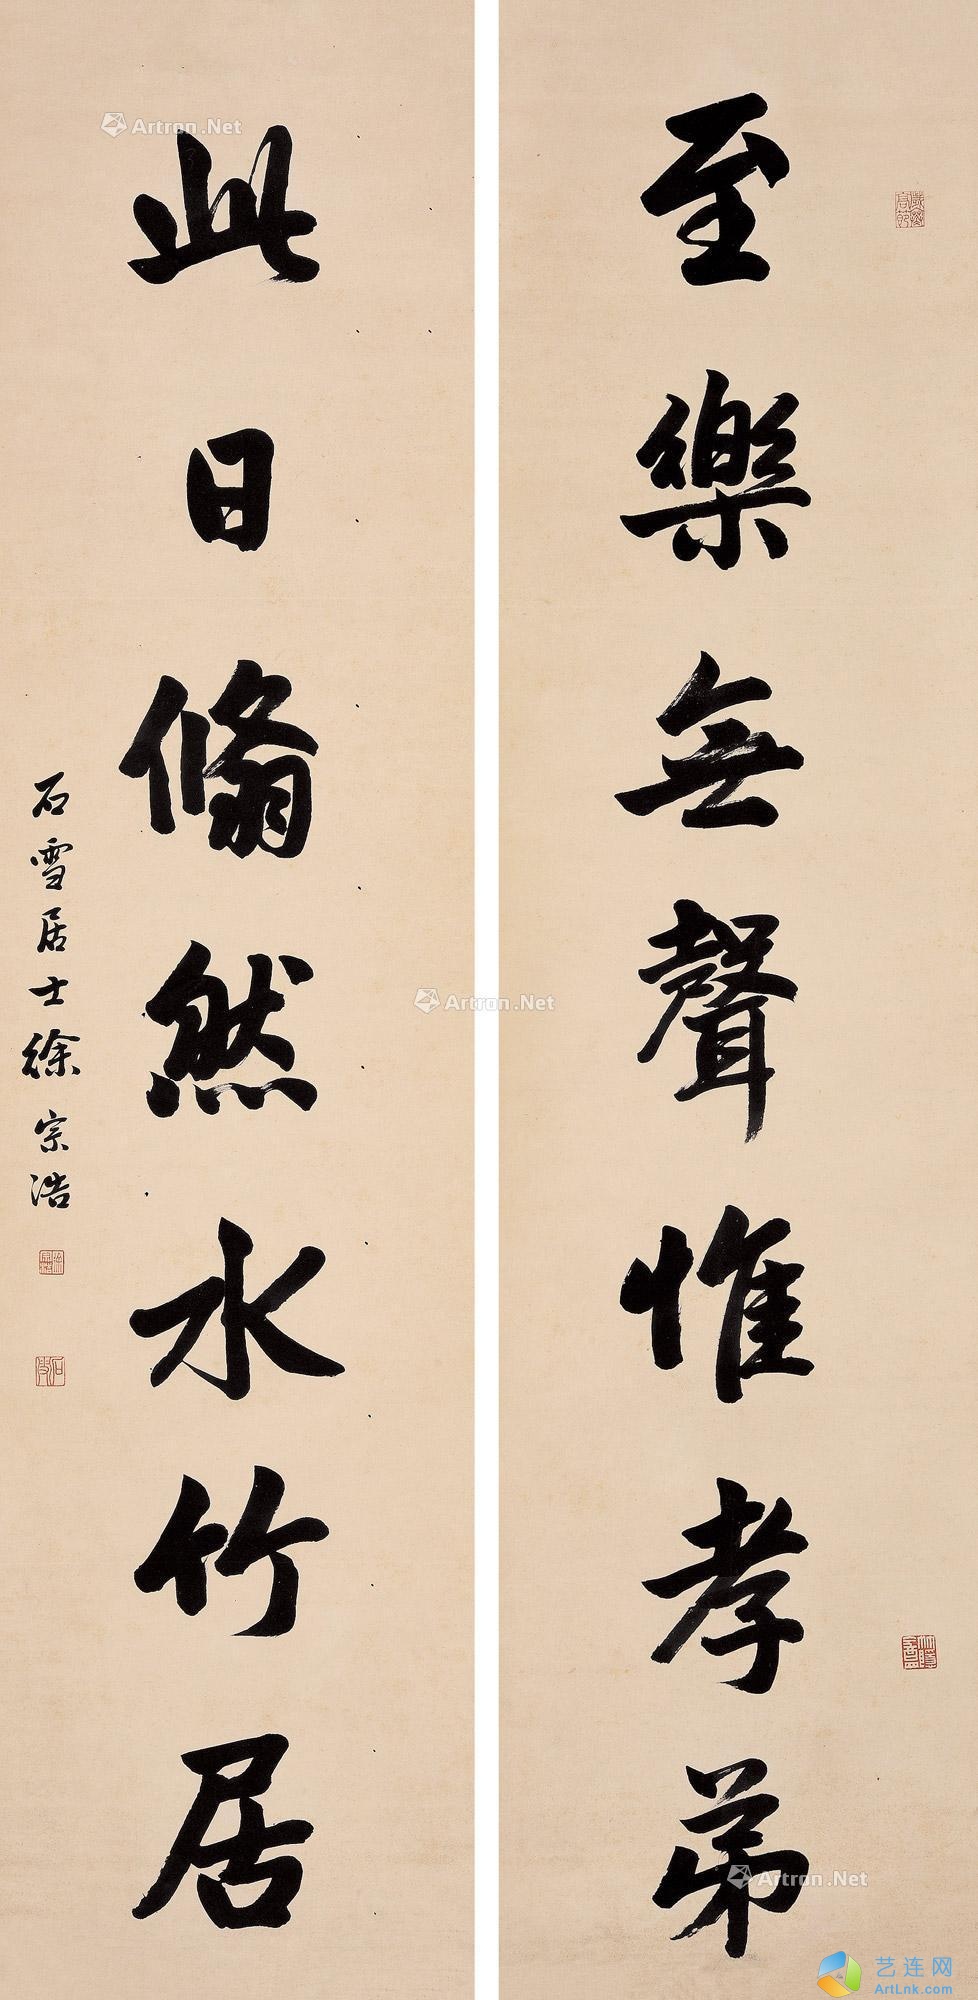 至樂無聲惟孝弟
此日翛然水竹居
石雪居士徐宗浩
Artron.Net
Artron.Net
Artron.Net
艺连网
ArtLnk.com